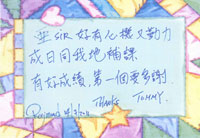 sir 好有心機又勤力
成日同我地補課
有好成績, 第一個要多謝
Thanks
TOMMY.